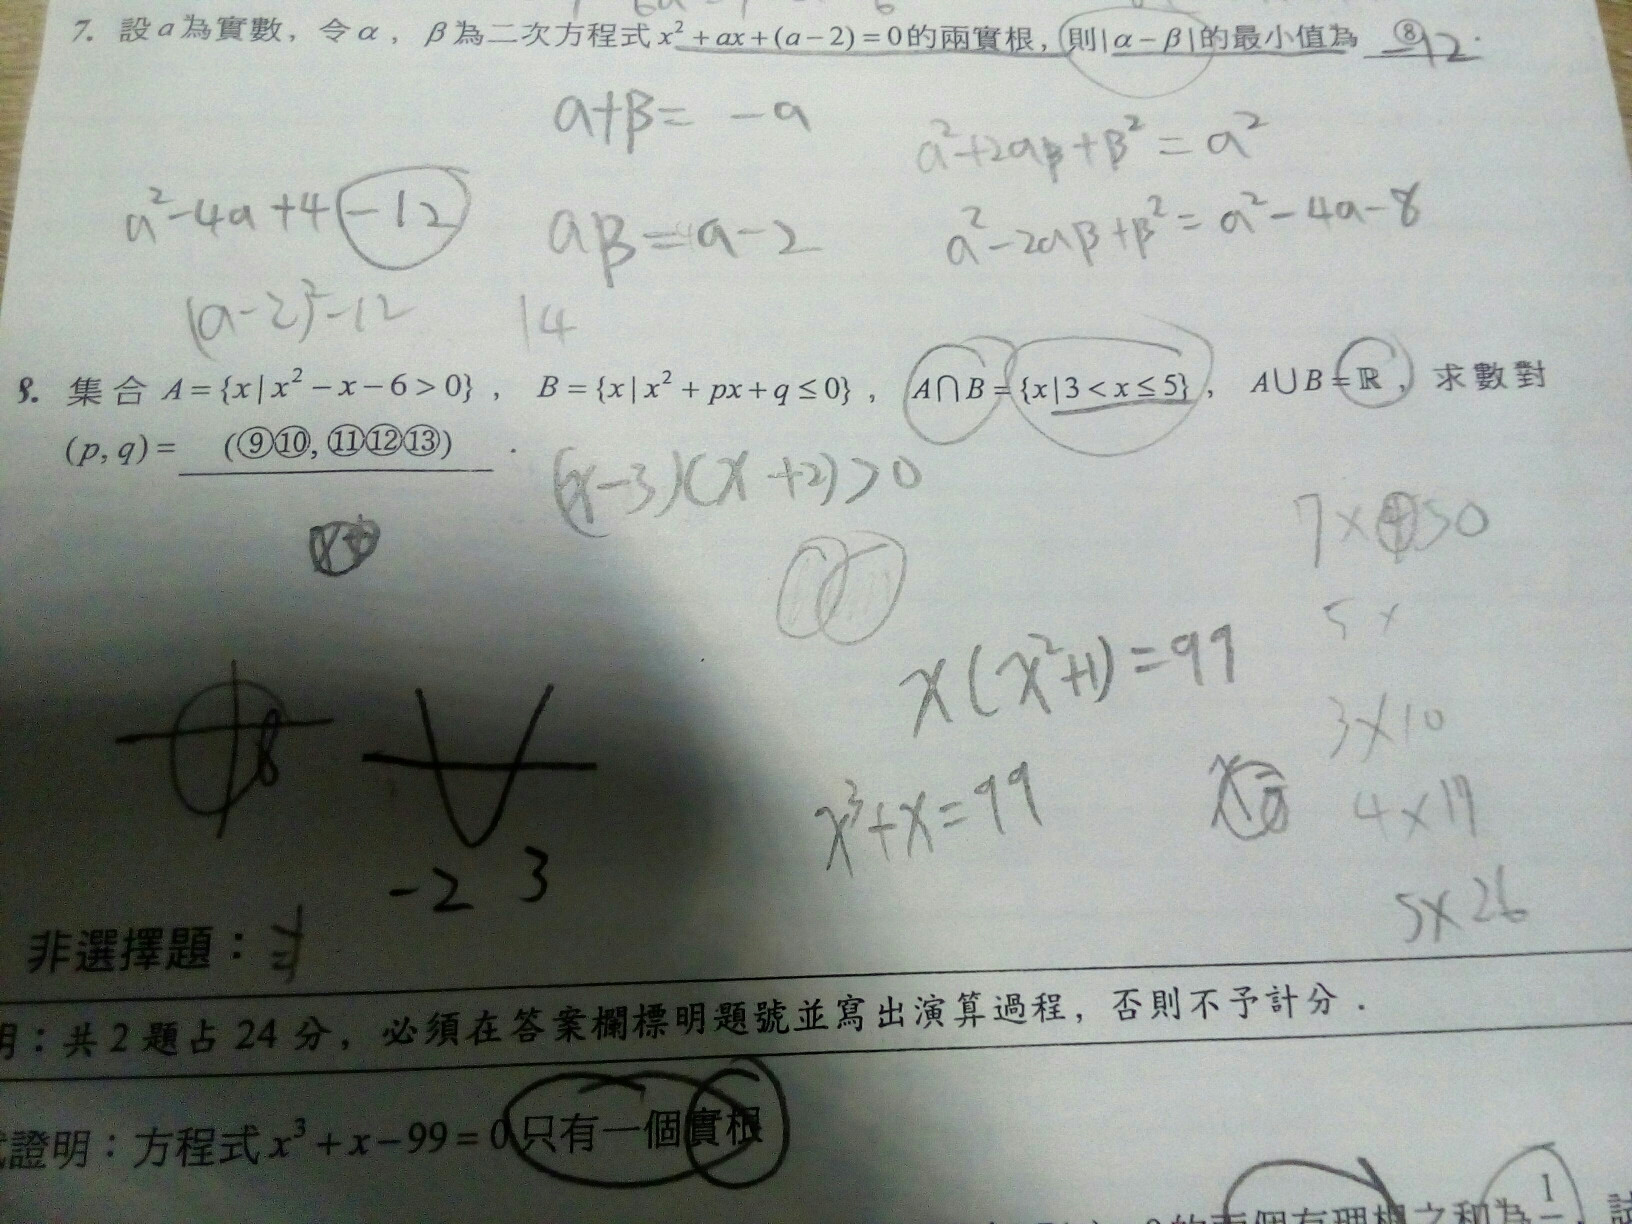 7. 設a為實數，令α，β為二次方程式x²+ax+(a-2)=0的兩實根，則|α-β|的最小值為 ⑧ 12.
a+β= -a
a²+2aβ+β²=a²
a²-4a+4-12
aβ=a-2
a²-2aβ+β²=a²-4a-8
(a-2)²-12
14
8. 集合A={x|x²-x-6>0}，B={x|x²+px+q≤0}，A∩B={x|3<x≤5}，A∪B=ℝ，求數對
(p,q)= (⑨⑩,⑪⑫⑬) .
(x-3)(x+2)>0
7x 50
5x
x(x²+1)=99
3x10
8
x³+x=99
4x17
-2 3
5x26
非選擇題：
明：共2題占24分，必須在答案欄標明題號並寫出演算過程，否則不予計分．
試證明：方程式x³+x-99=0只有一個實根
0的兩個有理根之和為1 試